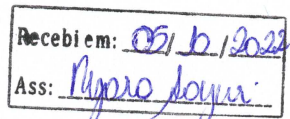 Recebi em: 05/10/2022
Ass: